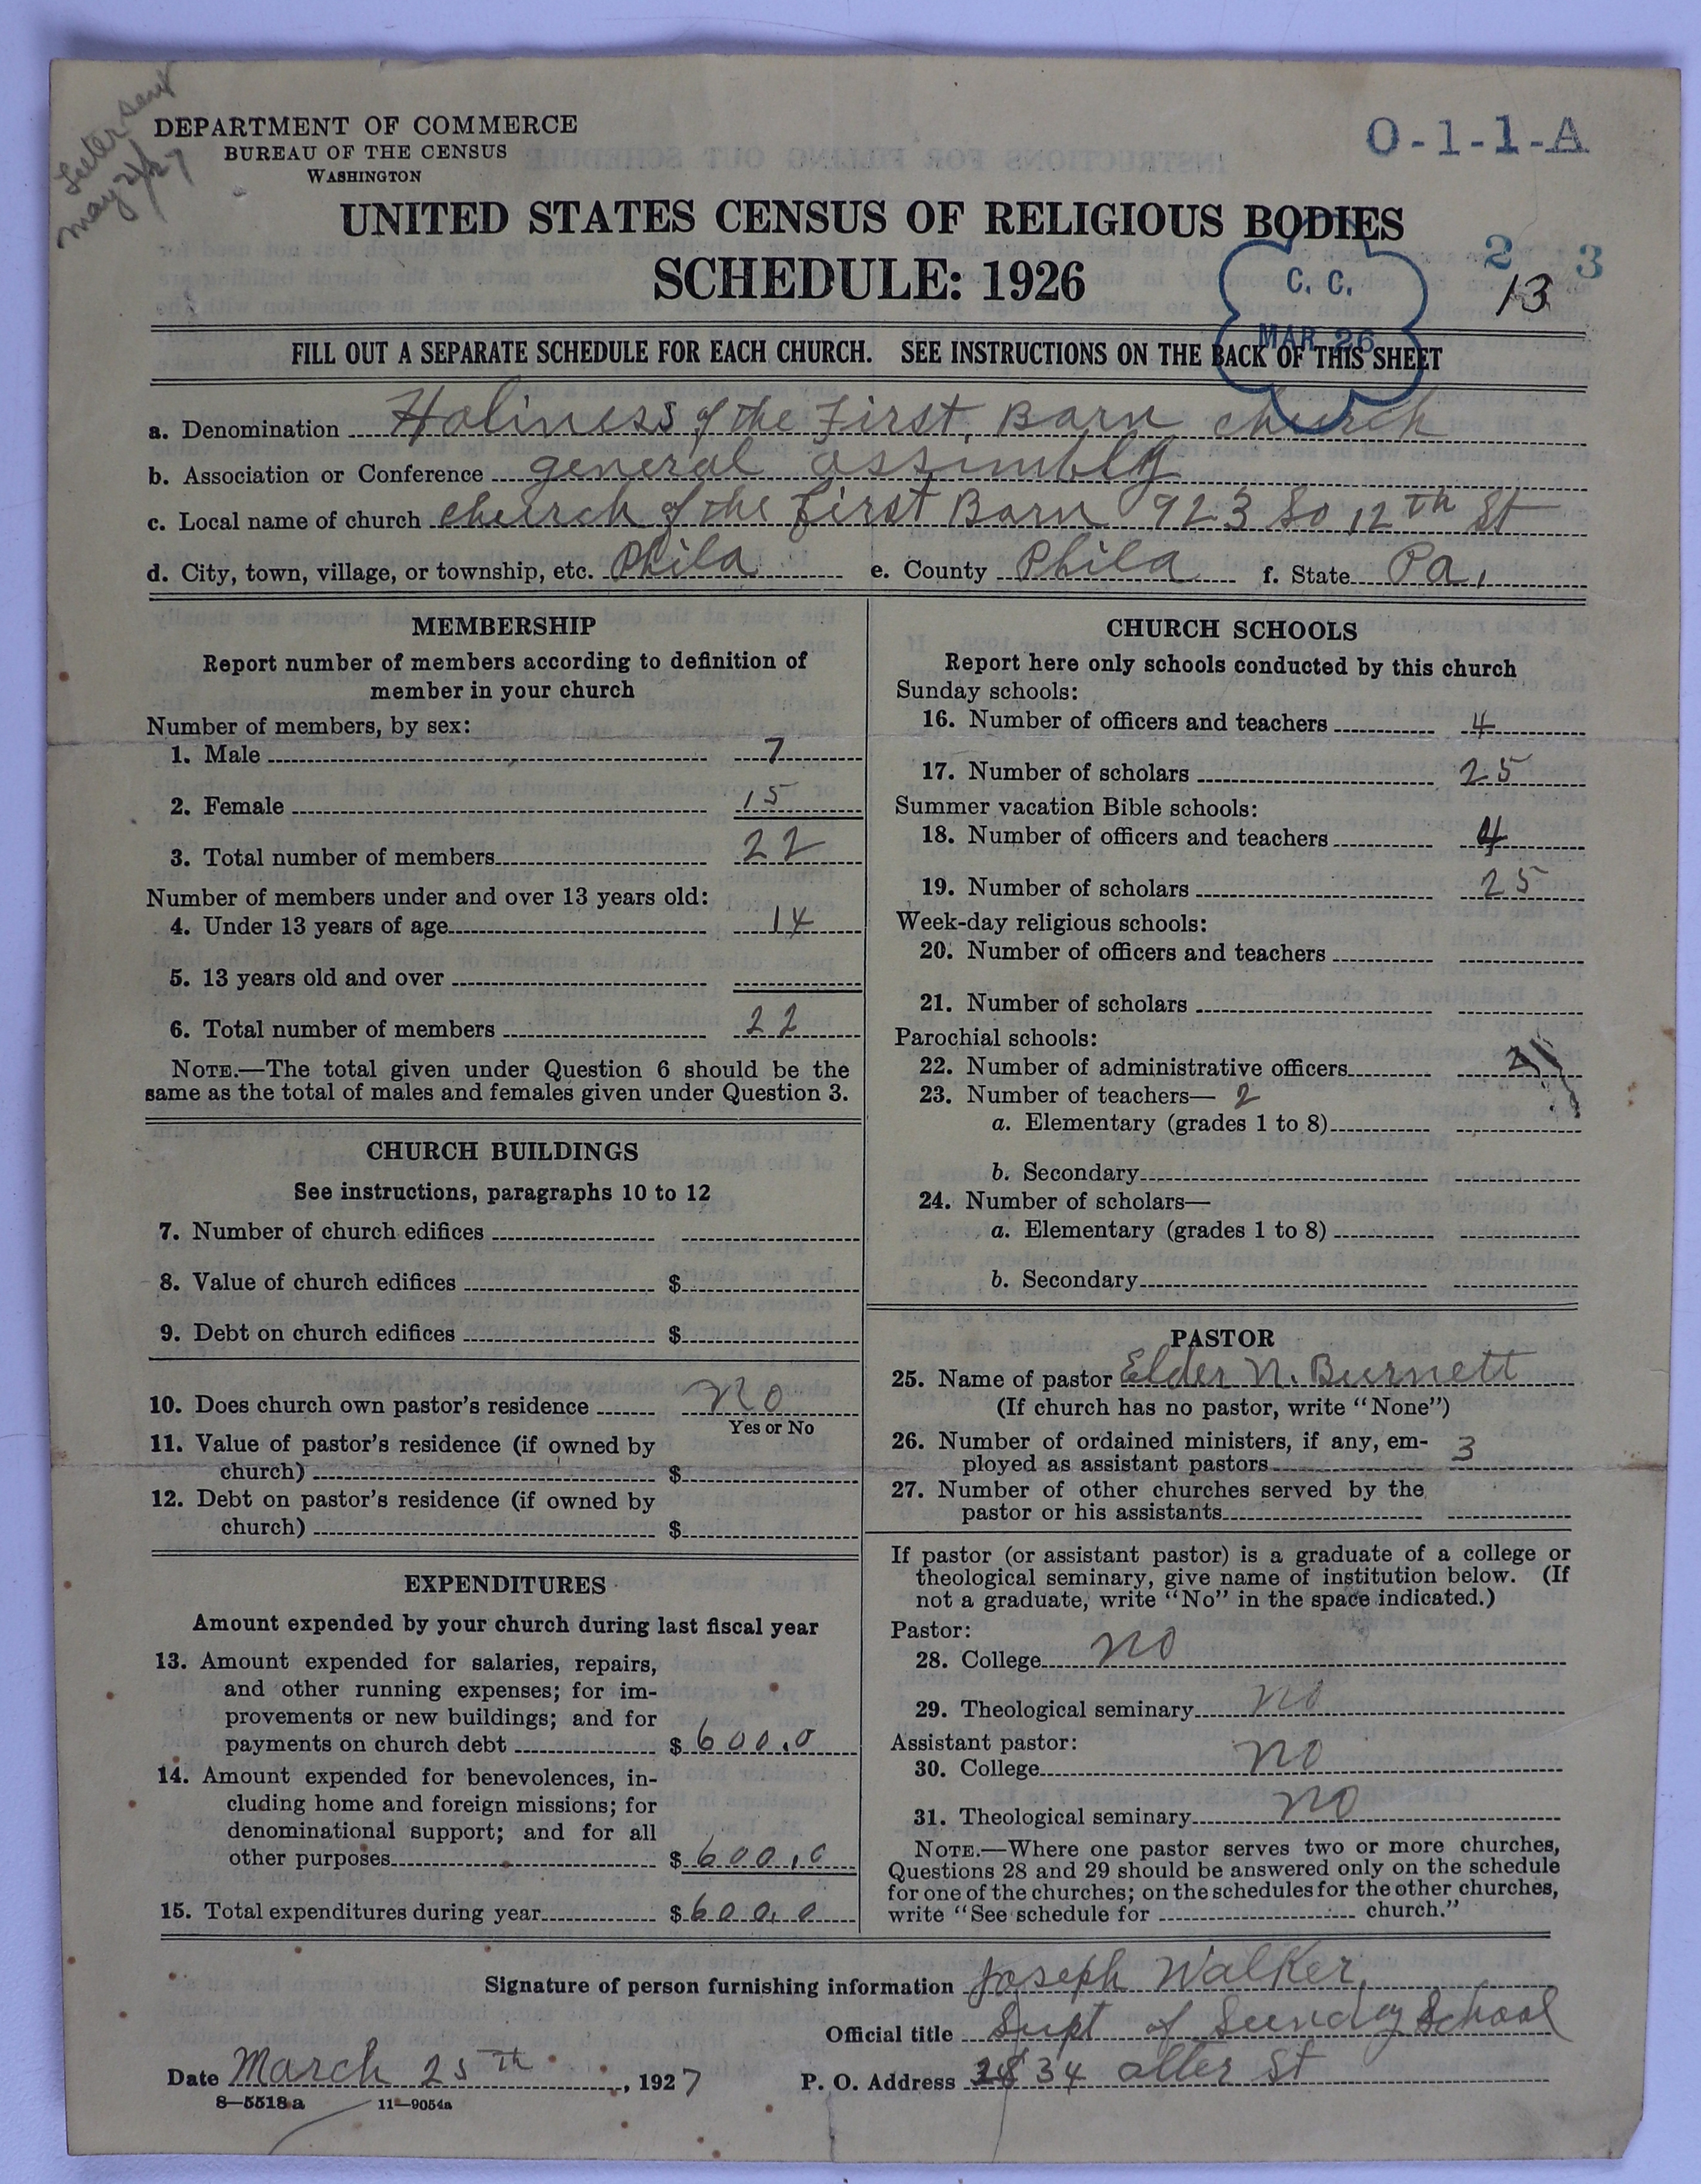 Letter sent
May 2/27
DEPARTMENT OF COMMERCE
BUREAU OF THE CENSUS
WASHINGTON
O-1-1-A
UNITED STATES CENSUS OF RELIGIOUS BODIES
SCHEDULE: 1926
2 3
13
C. C.
MAR 26
FILL OUT A SEPARATE SCHEDULE FOR EACH CHURCH. SEE INSTRUCTIONS ON THE BACK OF THIS SHEET
a. Denomination Holiness of the First, Born church
b. Association or Conference general assimbly
c. Local name of church church of the First Born 923 So 12th St
d. City, town, village, or township, etc. Phila e. County Phila f. State Pa,
MEMBERSHIP
Report number of members according to definition of
member in your church
Number of members, by sex:
1. Male 7
2. Female 15
3. Total number of members 22
Number of members under and over 13 years old:
4. Under 13 years of age 14
5. 13 years old and over
6. Total number of members 22
NOTE.—The total given under Question 6 should be the
same as the total of males and females given under Question 3.
CHURCH BUILDINGS
See instructions, paragraphs 10 to 12
7. Number of church edifices
8. Value of church edifices $
9. Debt on church edifices $
10. Does church own pastor's residence No
Yes or No
11. Value of pastor's residence (if owned by
church) $
12. Debt on pastor's residence (if owned by
church) $
EXPENDITURES
Amount expended by your church during last fiscal year
13. Amount expended for salaries, repairs,
and other running expenses; for im-
provements or new buildings; and for
payments on church debt $ 600.0
14. Amount expended for benevolences, in-
cluding home and foreign missions; for
denominational support; and for all
other purposes $ 600.0
15. Total expenditures during year $ 600.0
CHURCH SCHOOLS
Report here only schools conducted by this church
Sunday schools:
16. Number of officers and teachers 4
17. Number of scholars 25
Summer vacation Bible schools:
18. Number of officers and teachers 4
19. Number of scholars 25
Week-day religious schools:
20. Number of officers and teachers
21. Number of scholars
Parochial schools:
22. Number of administrative officers
23. Number of teachers— 2
a. Elementary (grades 1 to 8)
b. Secondary
24. Number of scholars—
a. Elementary (grades 1 to 8)
b. Secondary
PASTOR
25. Name of pastor Elder N. Burnett
(If church has no pastor, write "None")
26. Number of ordained ministers, if any, em-
ployed as assistant pastors 3
27. Number of other churches served by the
pastor or his assistants
If pastor (or assistant pastor) is a graduate of a college or
theological seminary, give name of institution below. (If
not a graduate, write "No" in the space indicated.)
Pastor:
28. College no
29. Theological seminary no
Assistant pastor:
30. College no
31. Theological seminary no
NOTE.—Where one pastor serves two or more churches,
Questions 28 and 29 should be answered only on the schedule
for one of the churches; on the schedules for the other churches,
write "See schedule for church."
Signature of person furnishing information Joseph Walker,
Official title Supt of Sunday School
Date March 25th, 1927 P. O. Address 34 alter St
8—5518a 11—9054a